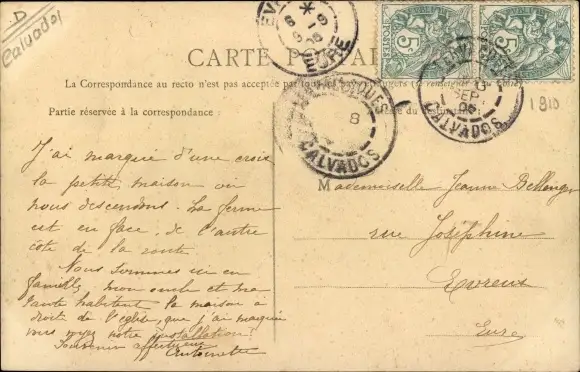 D
Calvados
CARTE POSTALE
La Correspondance au recto n'est pas acceptée par tous
Partie réservée à la correspondance
EVREUX
EURE
8
CALVADOS
5
5
POSTES
SEPT
CALVADOS
1910
J'ai marquée d'une croix
la petite maison où
nous descendons. La ferme
est en face, de l'autre
côté de la route
Nous sommes ici en
famille, mon oncle et ma
tante habitent la maison à
droit de l'église, que j'ai marquée
vous voyez notre installation!
Souvenir affectueux
Antoinette
M
Mademoiselle Jeanne Bellenger
rue Joséphine
Evreux
Eure